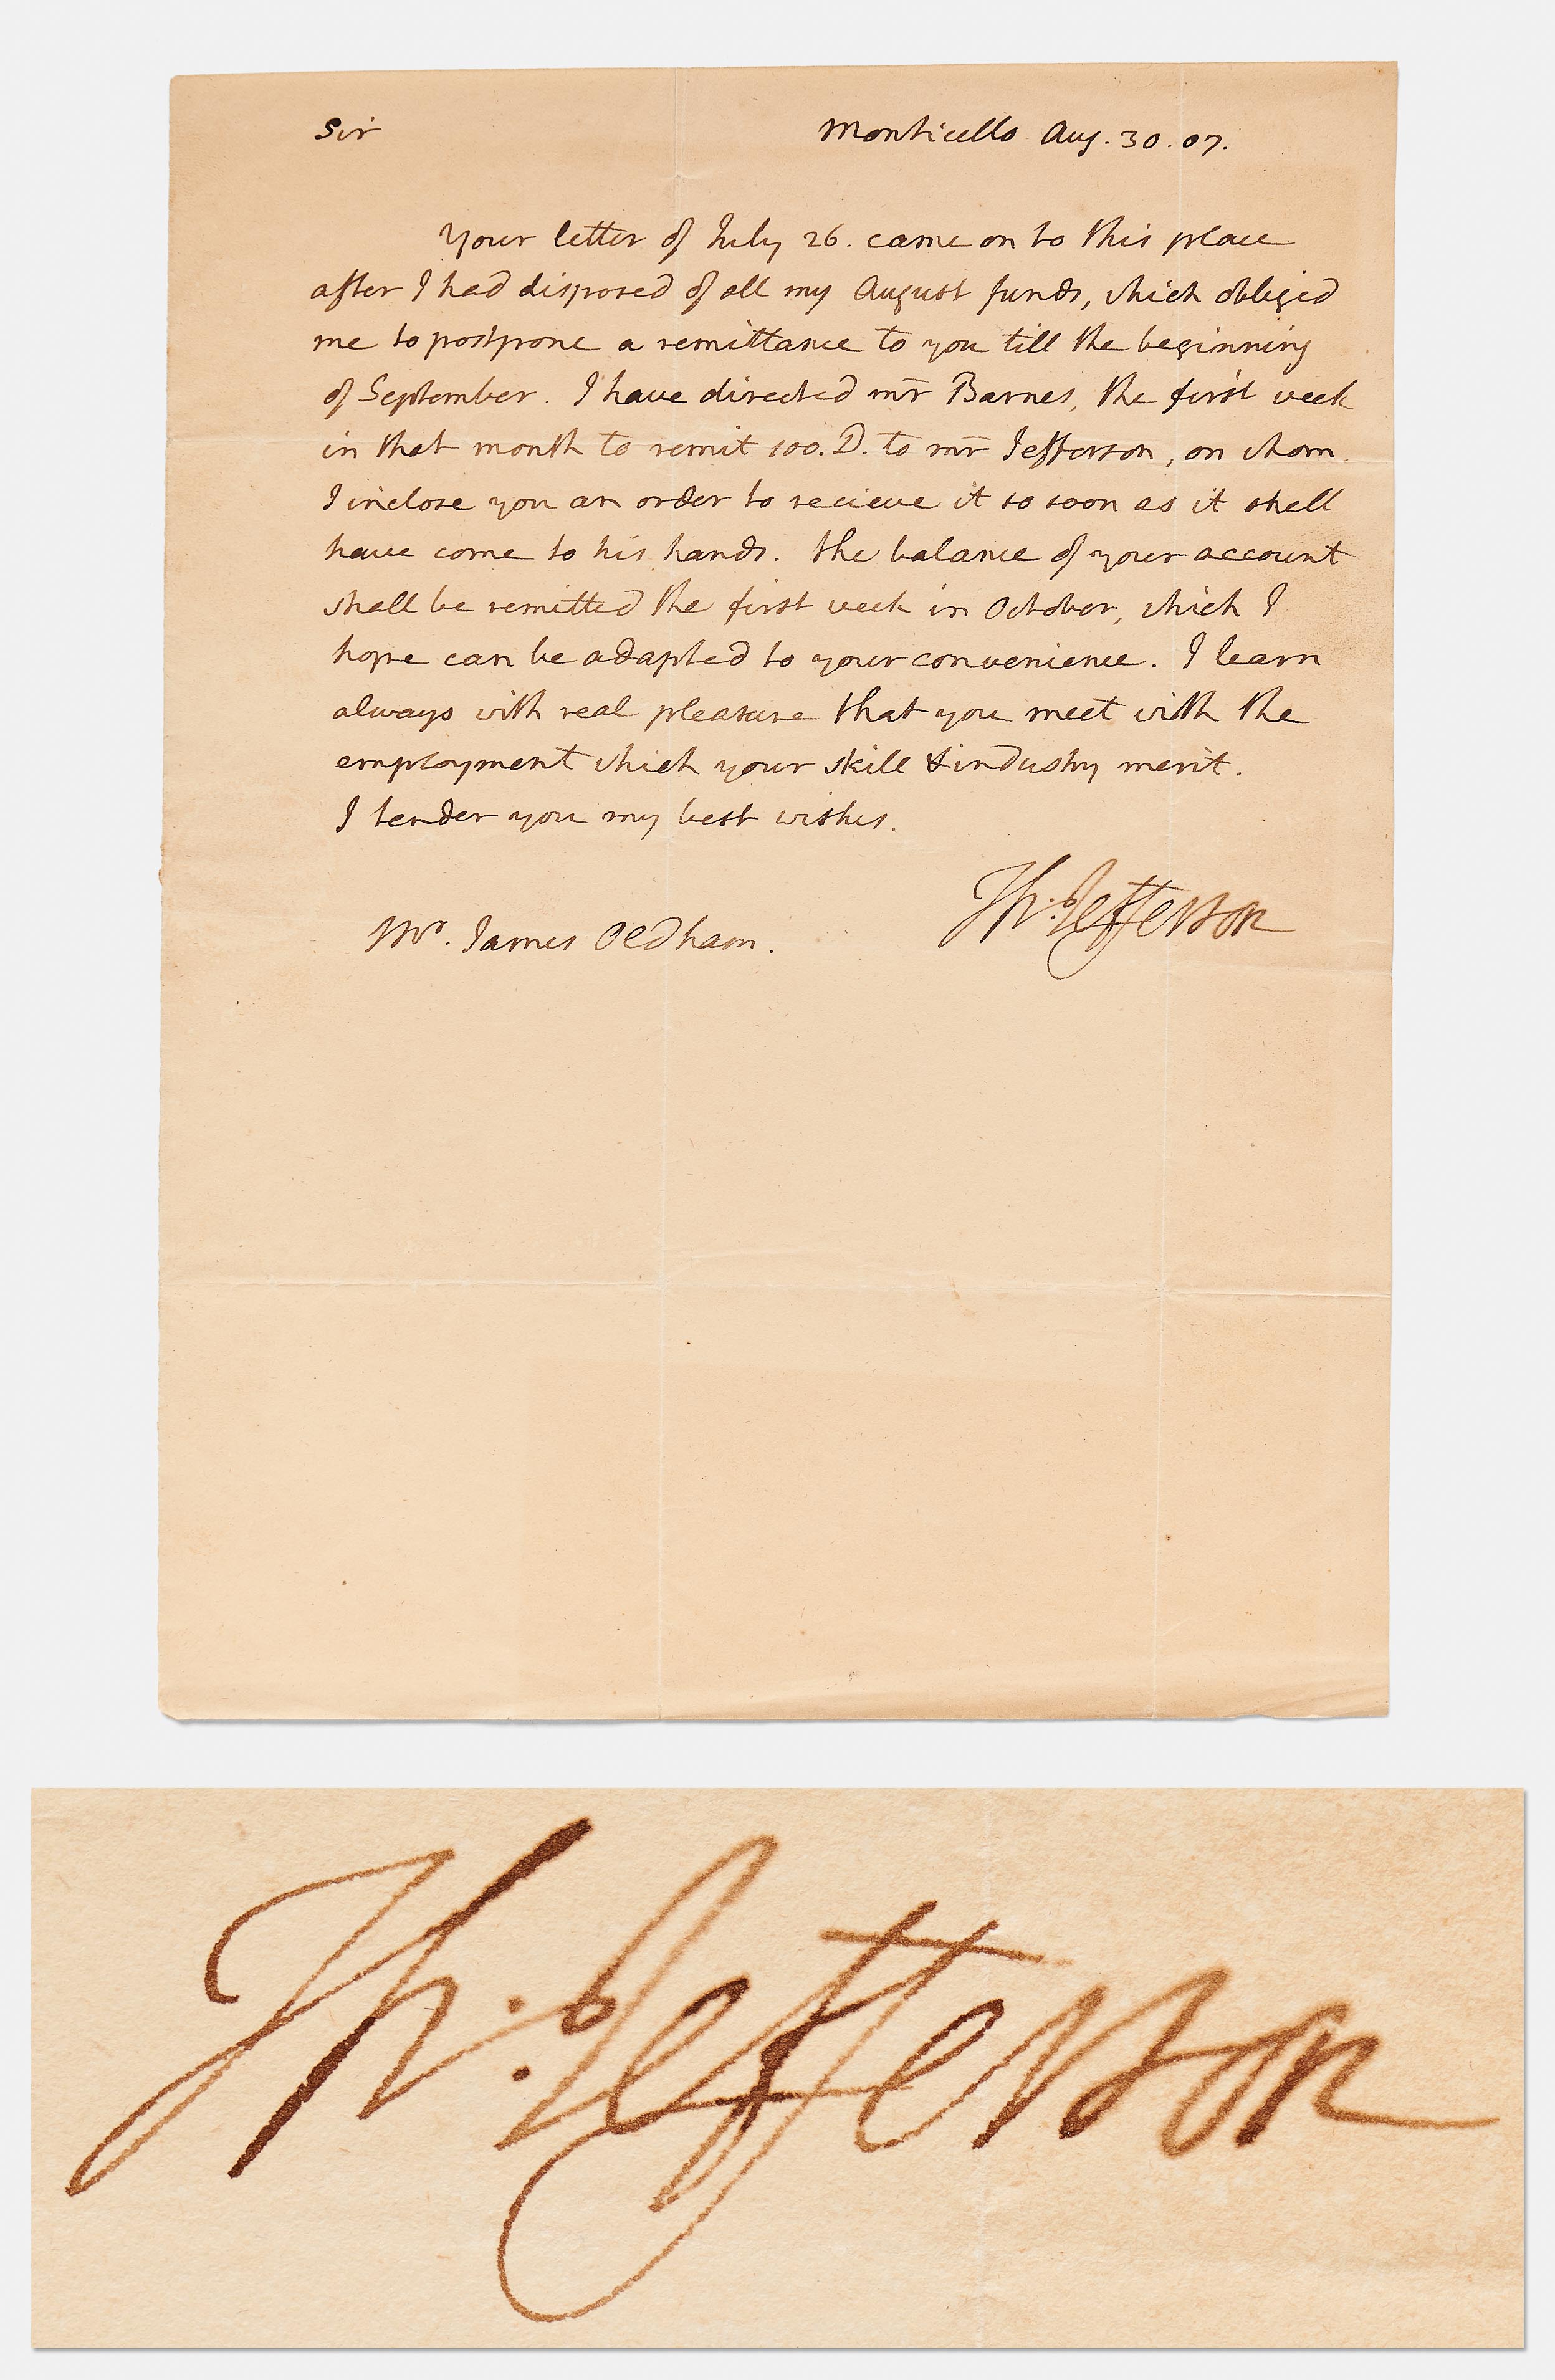 Sir Monticello Aug. 30. 07.
Your letter of July 26. came on to this place
after I had disposed of all my August funds, which obliged
me to postpone a remittance to you till the beginning
of September. I have directed mr Barnes, the first week
in that month to remit 100. D. to mr Jefferson, on whom
I inclose you an order to recieve it so soon as it shall
have come to his hands. the balance of your account
shall be remitted the first week in October, which I
hope can be adapted to your convenience. I learn
always with real pleasure that you meet with the
employment which your skill & industry merit.
I tender you my best wishes.
Th: Jefferson
Mr. James Oldham.
Th: Jefferson